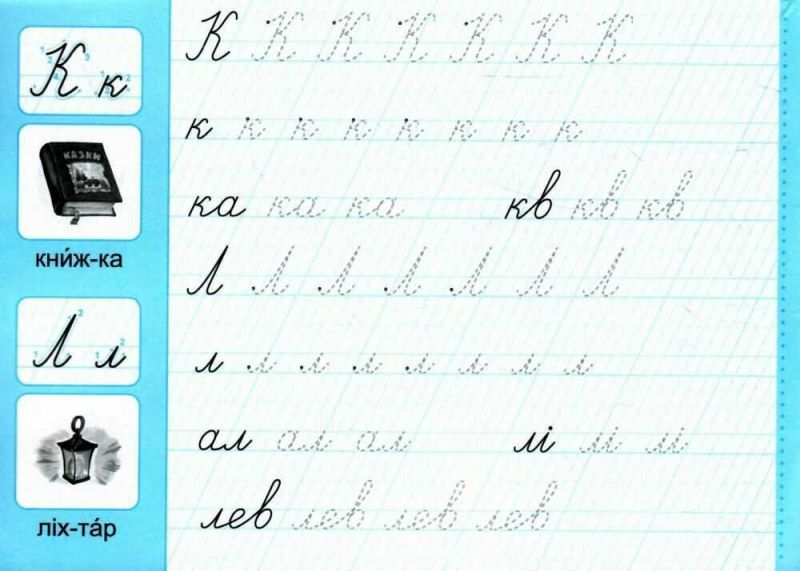 К к
КАЗКИ
кни́ж-ка
Л л
ліх-та́р
К К К К К К К
к к к к к к к к
ка ка ка кв кв кв
Л Л Л Л Л Л Л
л л л л л л л л
ал ал ал лі лі лі
лев лев лев лев